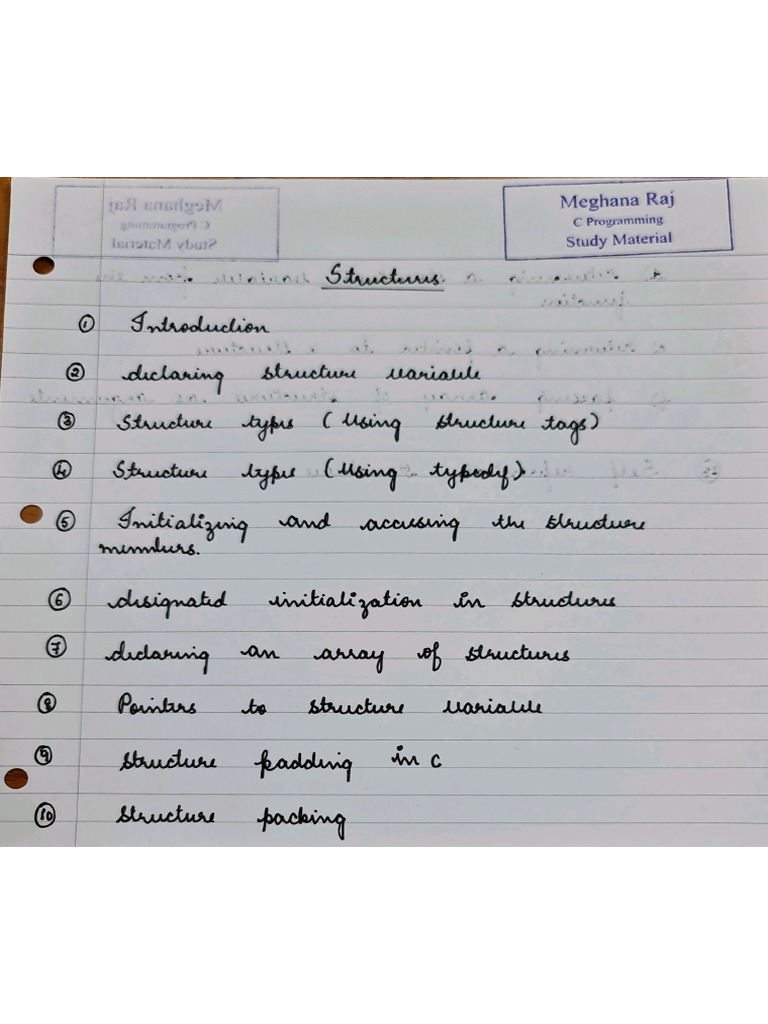 Meghana Raj
C Programming
Study Material
Structures
① Introduction
② declaring structure variable
③ Structure types (Using structure tags)
④ Structure types (Using typedef)
⑤ Initializing and accessing the structure
members.
⑥ designated initialization in structures
⑦ declaring an array of structures
⑧ Pointers to structure variable
⑨ structure padding in c
⑩ structure packing